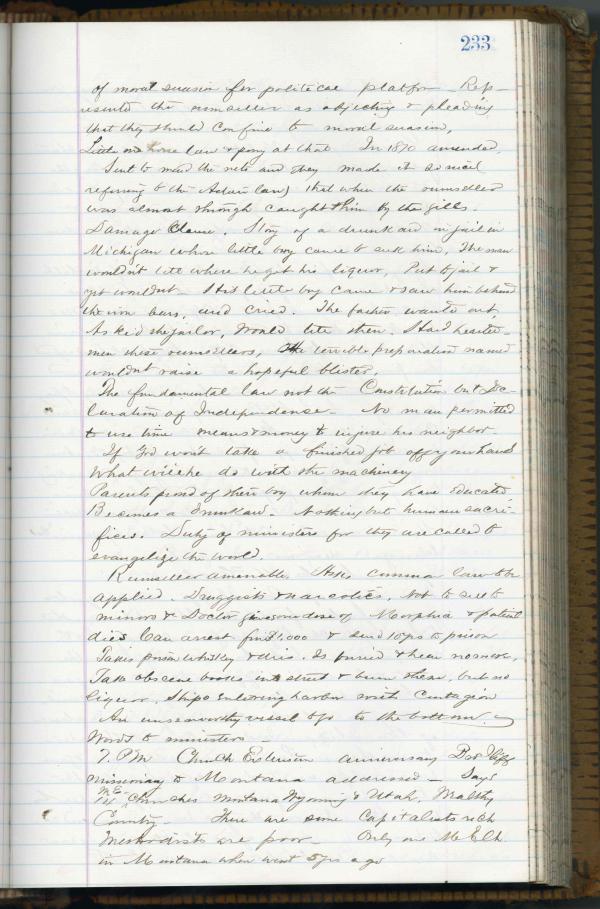 233
of moral suasion for political platfor - Rep-
resented the rumseller as objecting & pleading
that they should confine to moral suasion,
Little one horse law & pony at that In 1870 amended.
Sent to mend the nets and they made it so nice(
referring to the Adair law) that when the rumseller
was almost through caught him by the gills.
Damage Clause. Story of a drunkard in jail in
Michigan whose little boy came to see him, The man
wouldn't tell where he got his liquor, Put to jail &
yet wouldnt - His little boy came & saw him behind
the iron bars, and cried. The father wants out.
Asked the jailor, Would tell then. Hard hearted
men these rumsellers, The terrible preparation named
wouldnt raise a hopeful blister,
The fundamental law not the Constitution but Dec
laration of Independence - No man permitted
to use time means & money to injure his neighbor
If God wont take a finished job off your hands
What will he do with the machinery
Parents proud of their boy whom they have educated
Becomes a Drunkard. Nothing but human sacri-
fices. Duty of ministers for they are called to
evangelize the world.
Rumseller amenable. Asks common law to be
applied. Druggists & narcotics, Not to sell to
minors & Doctor gives one dose of Morphia & patient
dies Can arrest fine $1,000 & send 10 yrs to prison
Takes poison whiskey & dies. Is buried & hear no more,
Take obscene books in street & burn them, but no
liquor, Ships entering harbor with contagion
An unseaworthy vessel to go to the bottom.
Words to ministers -
7. PM Church Extension anniversary Bro Iliff
missionary to Montana addressed - Says
14 M.E. Churches Montana Wyoming & Utah, Wealthy
Country - There are some Capitalists rich
Methodists are poor - Only one M E Ch
in Montana when went 5 yrs ago